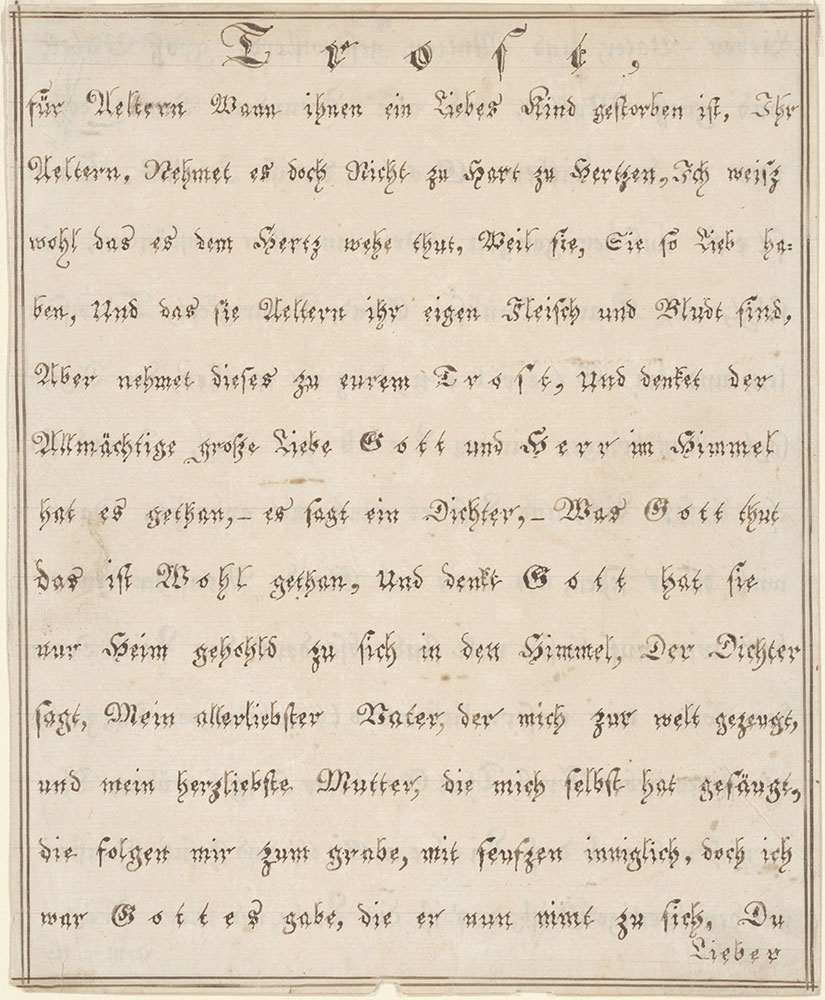 Trost,
für Aeltern Wann ihnen ein Liebes Kind gestorben ist, Ihr
Aeltern, Nehmet es doch Nicht zu Hart zu Hertzen, Ich weisz
wohl das es dem Hertz wehe thut, Weil sie, Sie so Lieb ha=
ben, Und das sie Aeltern ihr eigen Fleisch und Bludt sind,
Aber nehmet dieses zu eurem Trost, Und denket der
Allmächtige große Liebe Gott und Herr im Himmel
hat es gethan,– es sagt ein Dichter,– Was Gott thut
das ist Wohl gethan, Und denkt Gott hat sie
nur Heim gehohld zu sich in den Himmel, Der Dichter
sagt, Mein allerliebster Vater, der mich zur welt gezeugt,
und mein herzliebste Mutter, die mich selbst hat gesäugt,
die folgen mir zum grabe, mit seufzen inniglich, doch ich
war Gottes gabe, die er nun nimt zu sich, Du
Lieber